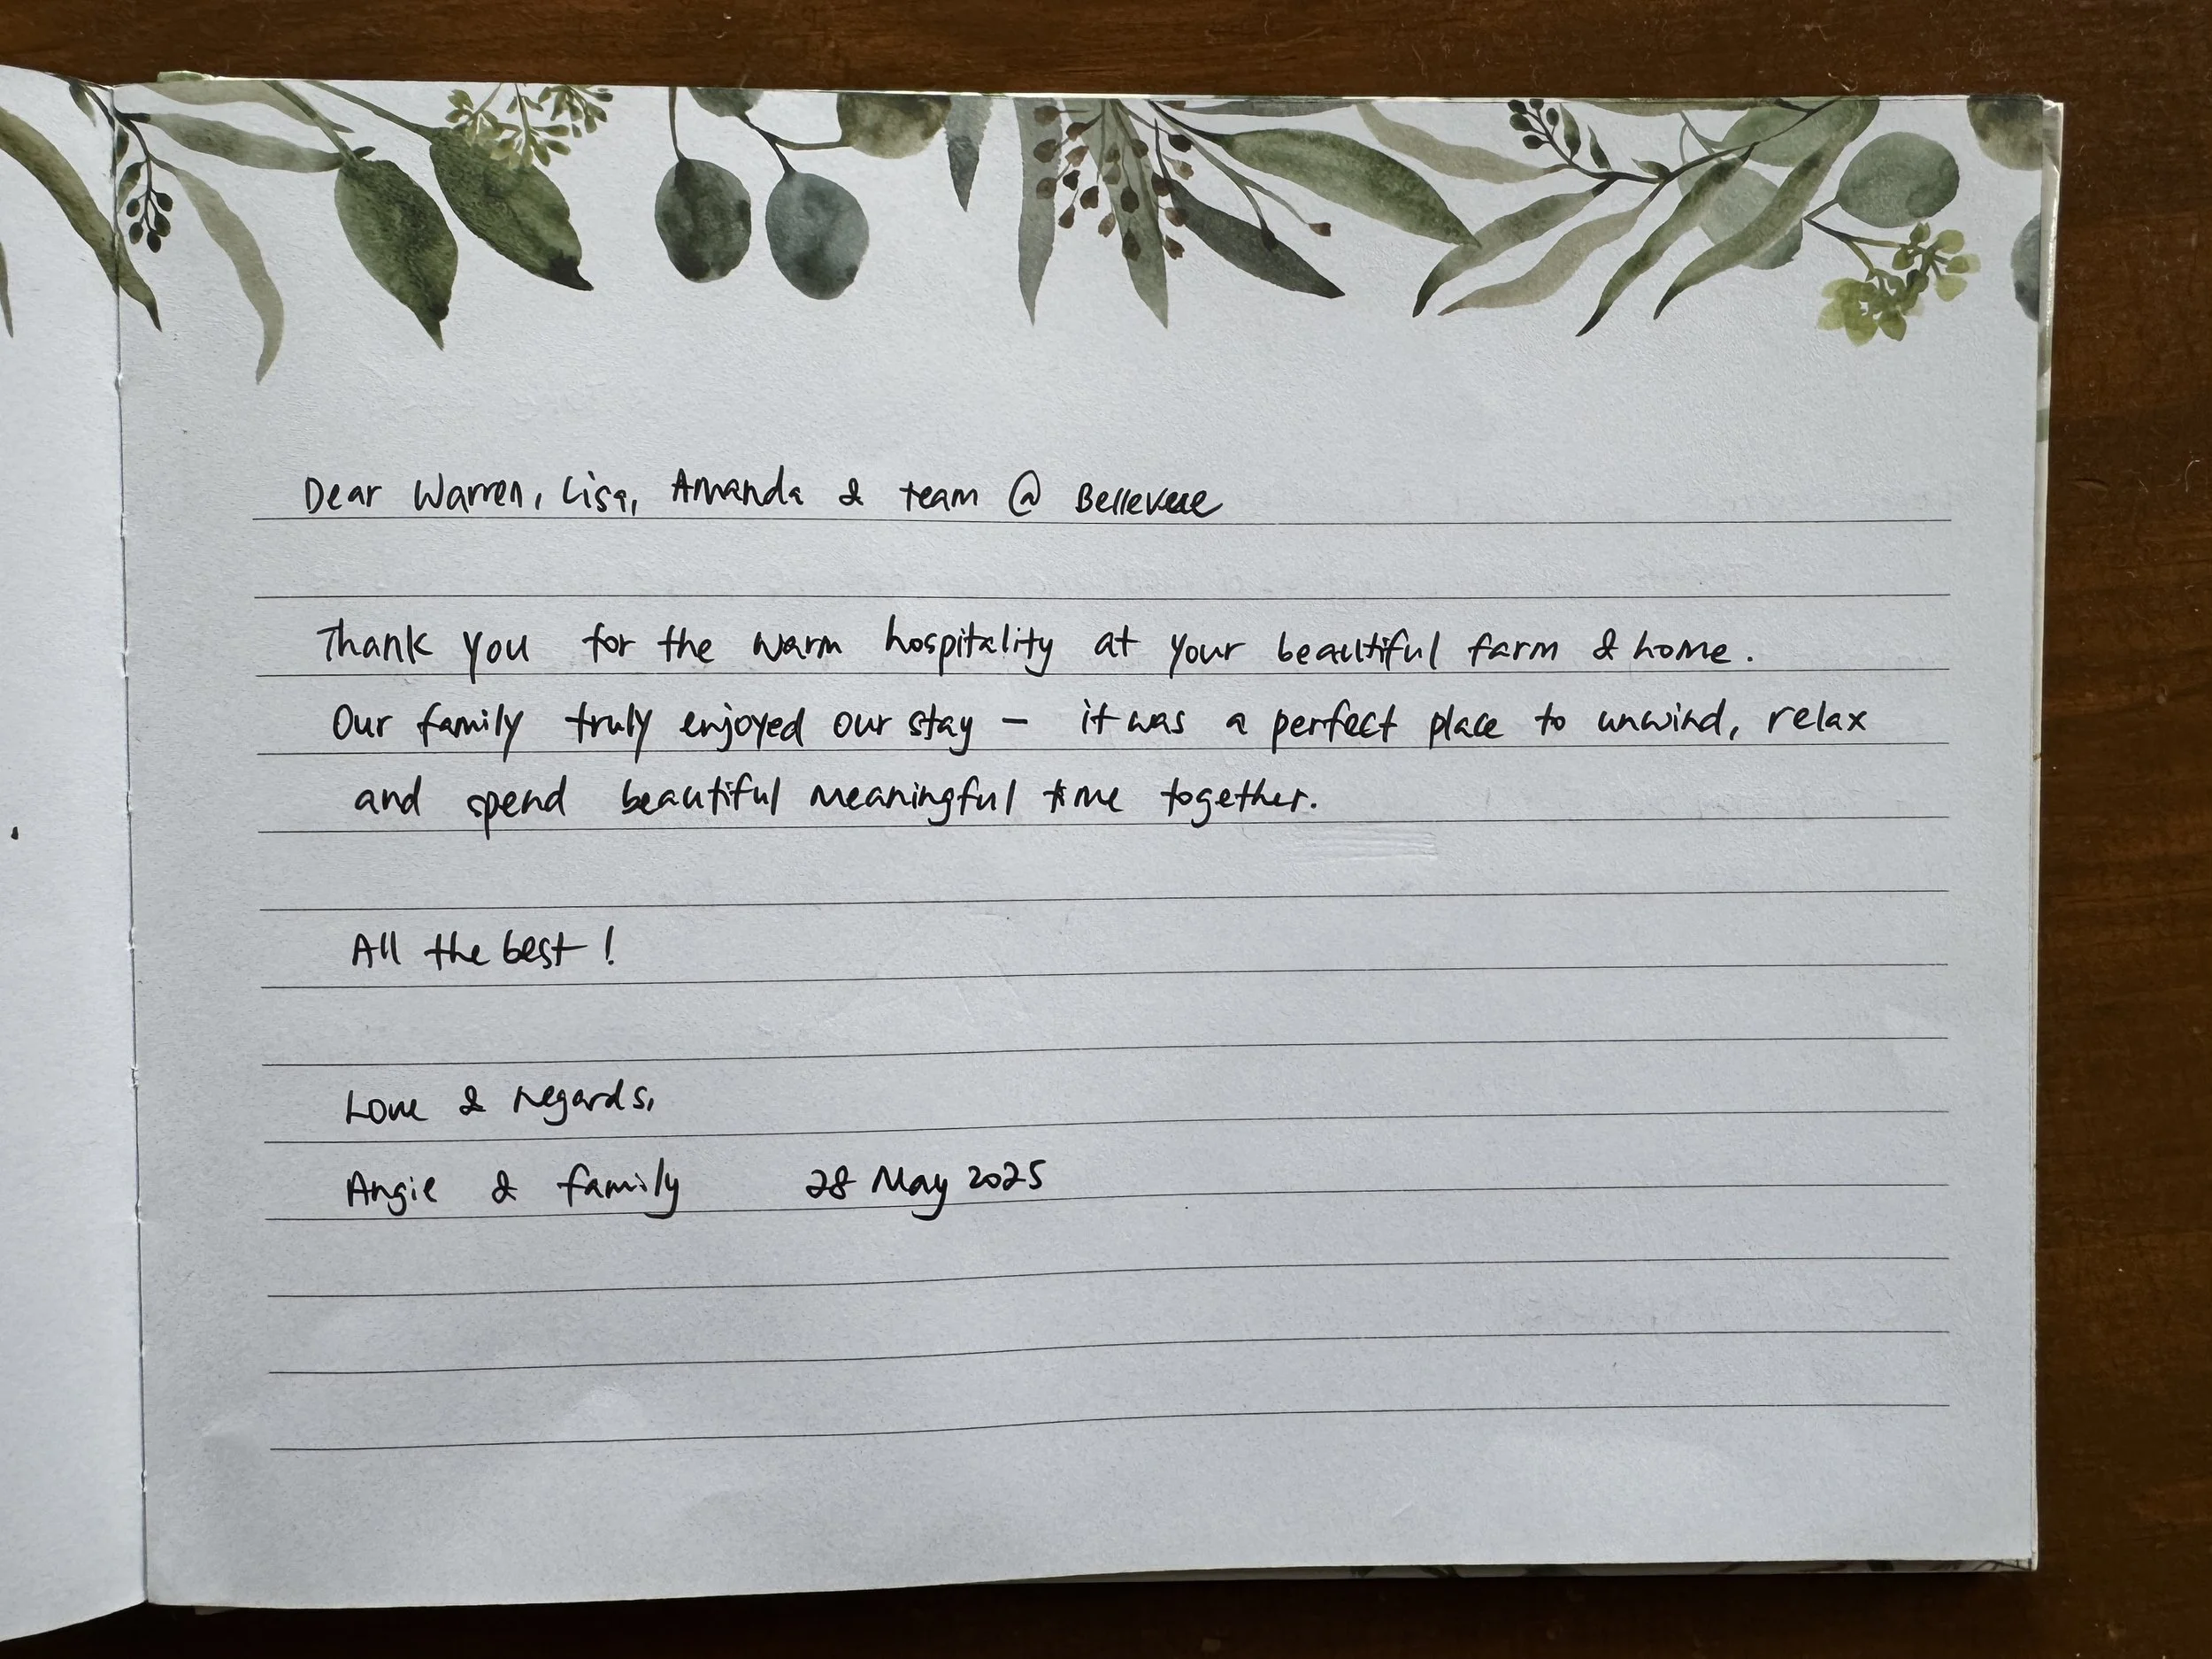 Dear Warren, Lisa, Amanda & team @
Thank you for the warm hospitality at your beautiful farm & home.
Our family truly enjoyed our stay – it was a perfect place to unwind, relax
and spend beautiful meaningful time together.
All the best!
Love & regards,
Angie & family 28 May 2025